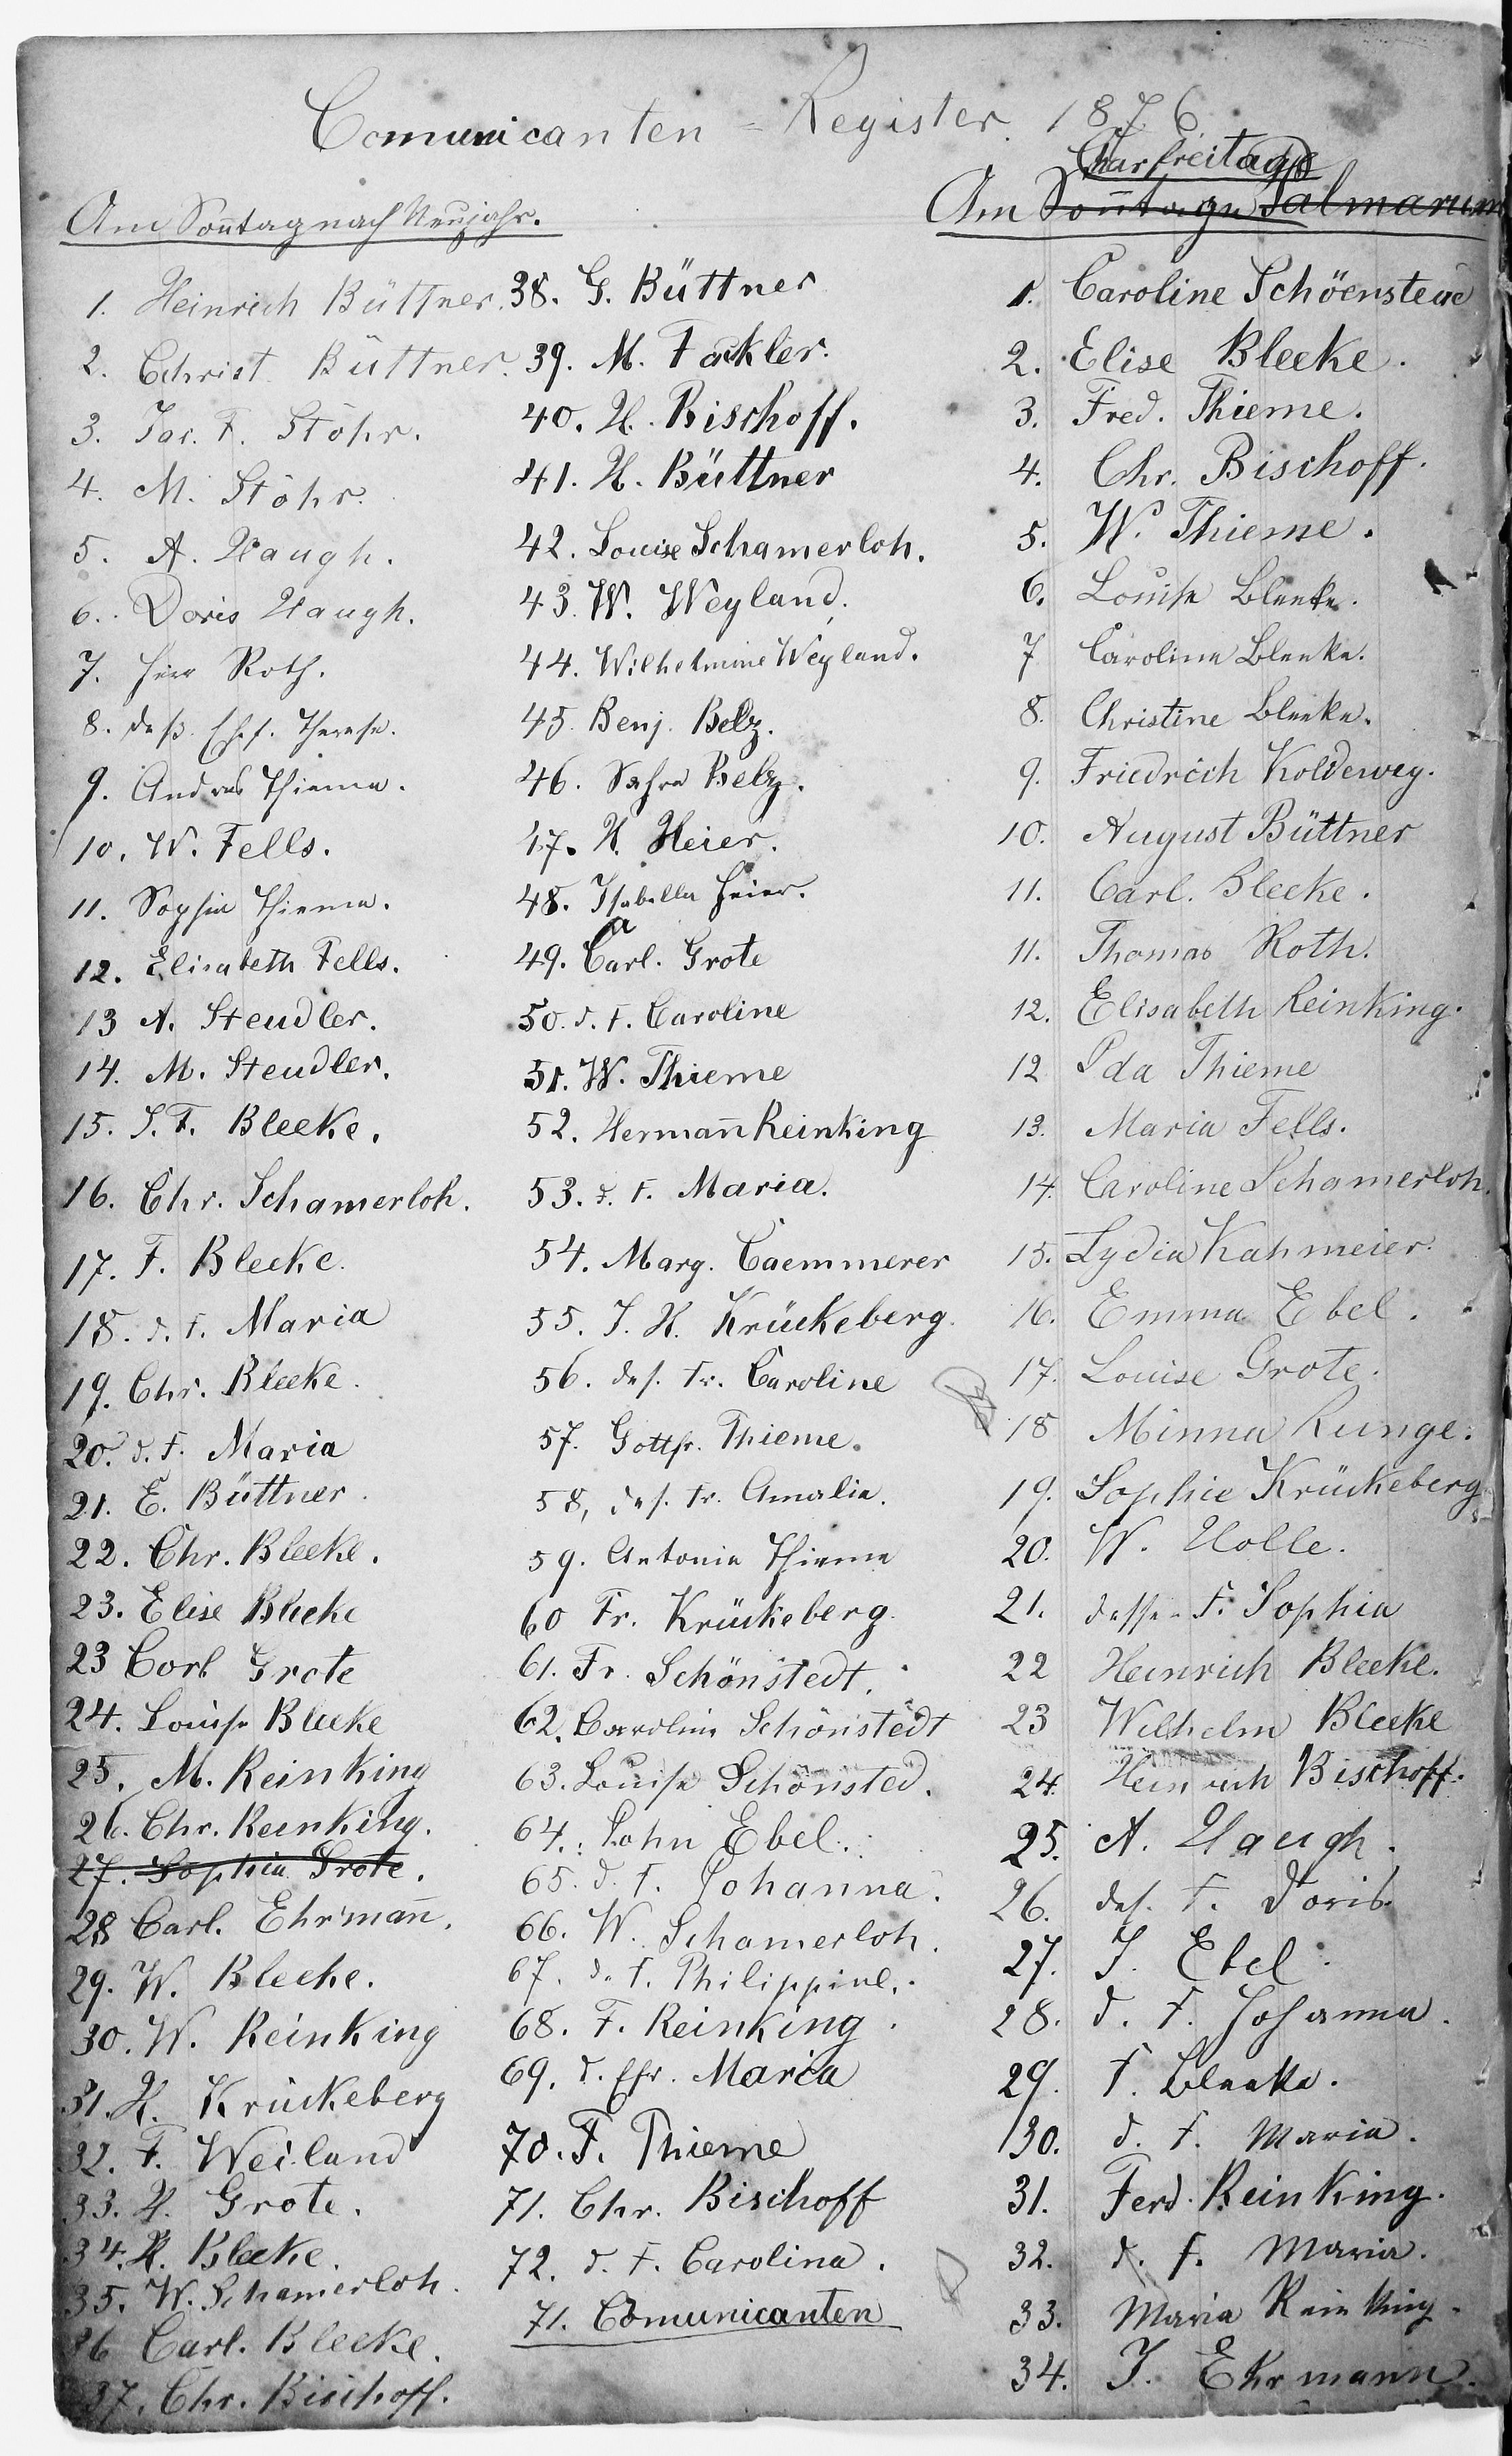 Comunicanten = Register. 1876.
Am Soñtag nach Neujahr.
1. Heinrich Büttner.
2. Christ. Büttner.
3. Jac. F. Stöhr.
4. M. Stöhr.
5. A. Haugh.
6. Doris Haugh.
7. Herr Roth.
8. deß. Ehf. Therese.
9. Andreas Thieme.
10. W. Fells.
11. Sophie Thieme.
12. Elisabeth Fells.
13 A. Steudler.
14. M. Steudler.
15. J. F. Bleeke.
16. Chr. Schamerloh.
17. F. Bleeke.
18. d. F. Maria
19. Chr. Bleeke.
20. d. F. Maria
21. E. Büttner.
22. Chr. Bleeke.
23. Elise Bleeke
23 Corl Grote
24. Louise Bleeke
25. M. Reinking
26. Chr. Reinking.
27. Sophia Grote.
28 Carl. Ehrmañ.
29. W. Bleeke.
30. W. Reinking
31. H. Krückeberg
32. F. Weiland
33. H. Grote.
34. H. Bleeke.
35. W. Schamerloh.
36 Carl. Bleeke.
37. Chr. Bischoff.
38. G. Büttner
39. M. Fackler.
40. H. Bischoff.
41. H. Büttner
42. Louise Schamerloh.
43. W. Weyland.
44. Wilhelmine Weyland.
45. Benj. Belz.
46. Sahra Belz.
47. H. Heier.
48. Isabella Heier.
49. Carl. Grote
50. d. F. Caroline
51. W. Thieme
52. Hermañ Reinking
53. d. F. Maria.
54. Marg. Caemmerer
55. J. H. Krückeberg.
56. des. Fr. Caroline
57. Gottfr. Thieme.
58, des. Fr. Amalie.
59. Antonie Thieme
60 Fr. Krückeberg.
61. Fr. Schönstedt.
62. Caroline Schönstedt
63. Louise Schönsted.
64. John Ebel.
65. d. F. Johanna.
66. W. Schamerloh.
67. d. F. Philippine.
68. F. Reinking.
69. d. Efr. Maria
70. F. Thieme
71. Chr. Bischoff
72. d. F. Carolina.
71. Comunicanten
Charfreitage
Am Soñtage Palmarum
1. Caroline
2. Elise Bleeke.
3. Fred. Thieme.
4. Chr. Bischoff.
5. W. Thieme.
6. Louise Bleeke.
7 Caroline Bleeke.
8. Christine Bleeke.
9. Friedrich Koldewey.
10. August Büttner
11. Carl. Bleeke.
11. Thomas Roth.
12. Elisabeth Reinking.
12 Ida Thieme
13. Maria Fells.
14. Caroline Schamerloh.
15. Lydia Kahmeier.
16. Emma Ebel.
17. Louise Grote.
18 Minna Runge.
19. Sophie Krückeberg
20. W. Nolle.
21. dessen F. Sophia
22 Heinrich Bleeke.
23 Wilhelm Bleeke
24. Heinrich Bischoff.
25. A. Haugh.
26. des. F. Doris.
27. J. Ebel.
28. d. F. Johanna.
29. F. Bleeke.
30. d. F. Maria.
31. Ferd. Reinking.
32. d. F. Maria.
33. Maria Reinking.
34. J. Ehrmann.